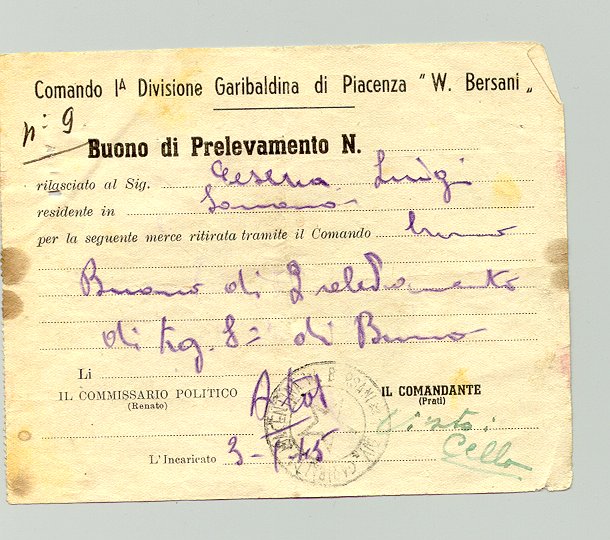 Comando Iª Divisione Garibaldina di Piacenza "W. Bersani„
n: 9
Buono di Prelevamento N.
rilasciato al Sig. Luigi
residente in
per la seguente merce ritirata tramite il Comando
Buono di Prelevamento
di kg. 8= di Burro
Li
IL COMMISSARIO POLITICO IL COMANDANTE
(Renato) (Prati)
Visto:
L'Incaricato 3-1-45 Cello